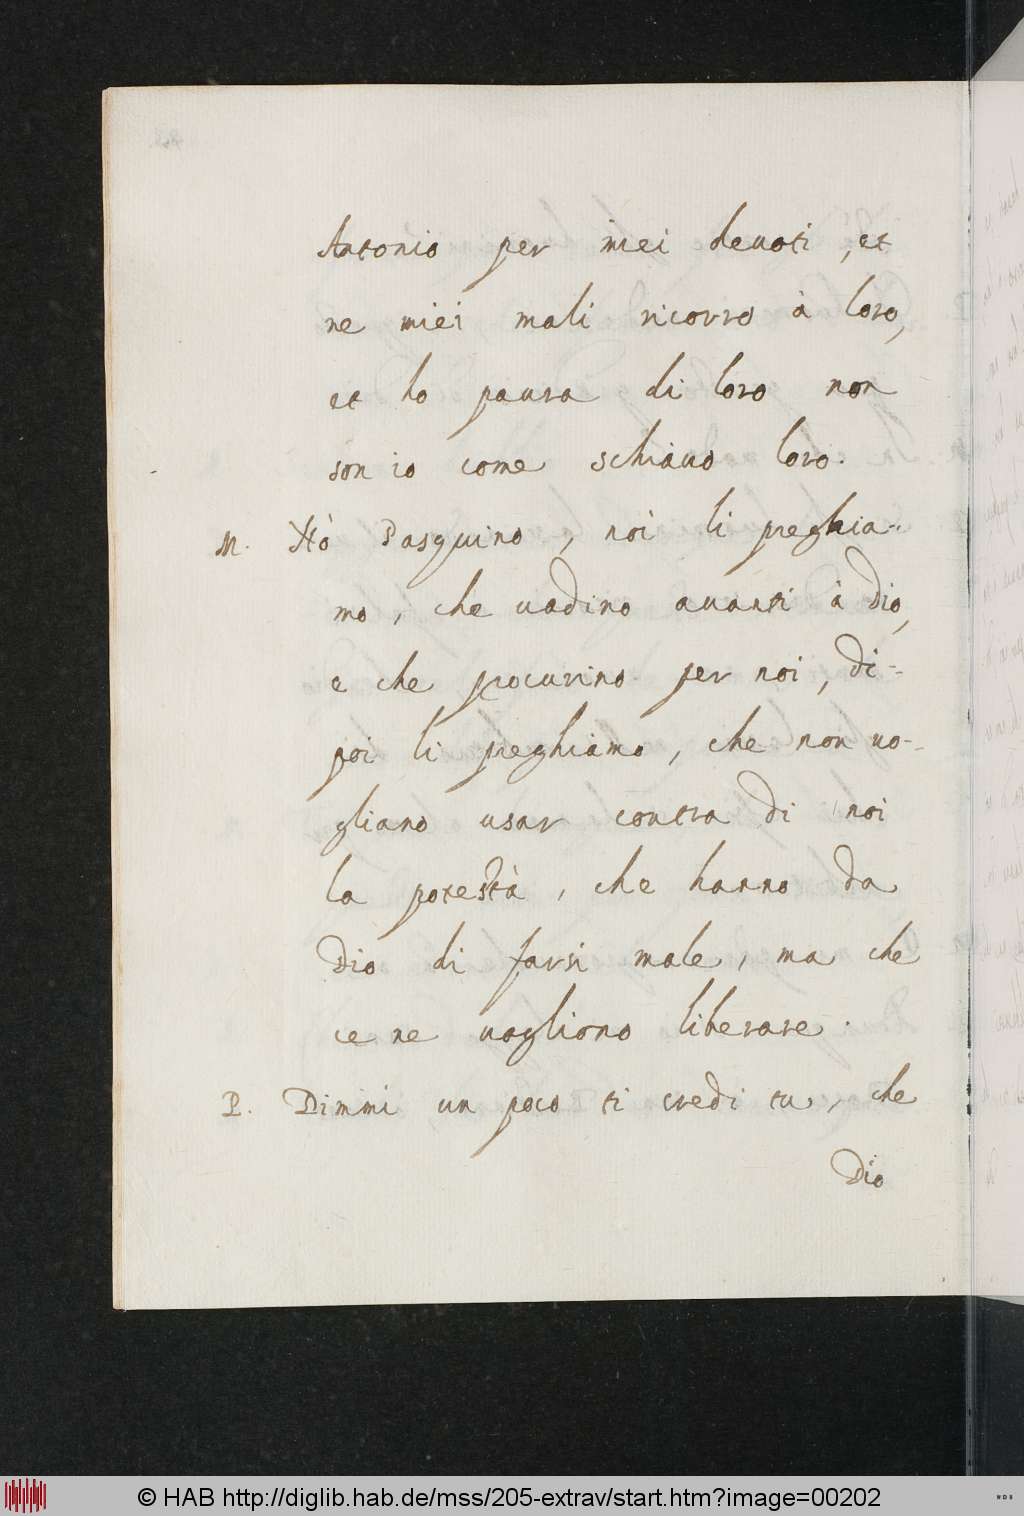 Antonio per miei deuoti, et
ne miei mali ricorro à loro,
et ho paura di loro non
son io come schiauo loro.
M. Hò Pasquino, noi li preghia-
mo, che uadino auanti à Dio,
e che procurino per noi, di-
poi li preghiamo, che non uo-
gliano usar contra di noi
la potestà, che hanno da
Dio di farsi male, ma che
ce ne uogliono liberare.
P. Dimmi un poco ti credi tu, che
Dio
© HAB http://diglib.hab.de/mss/205-extrav/start.htm?image=00202